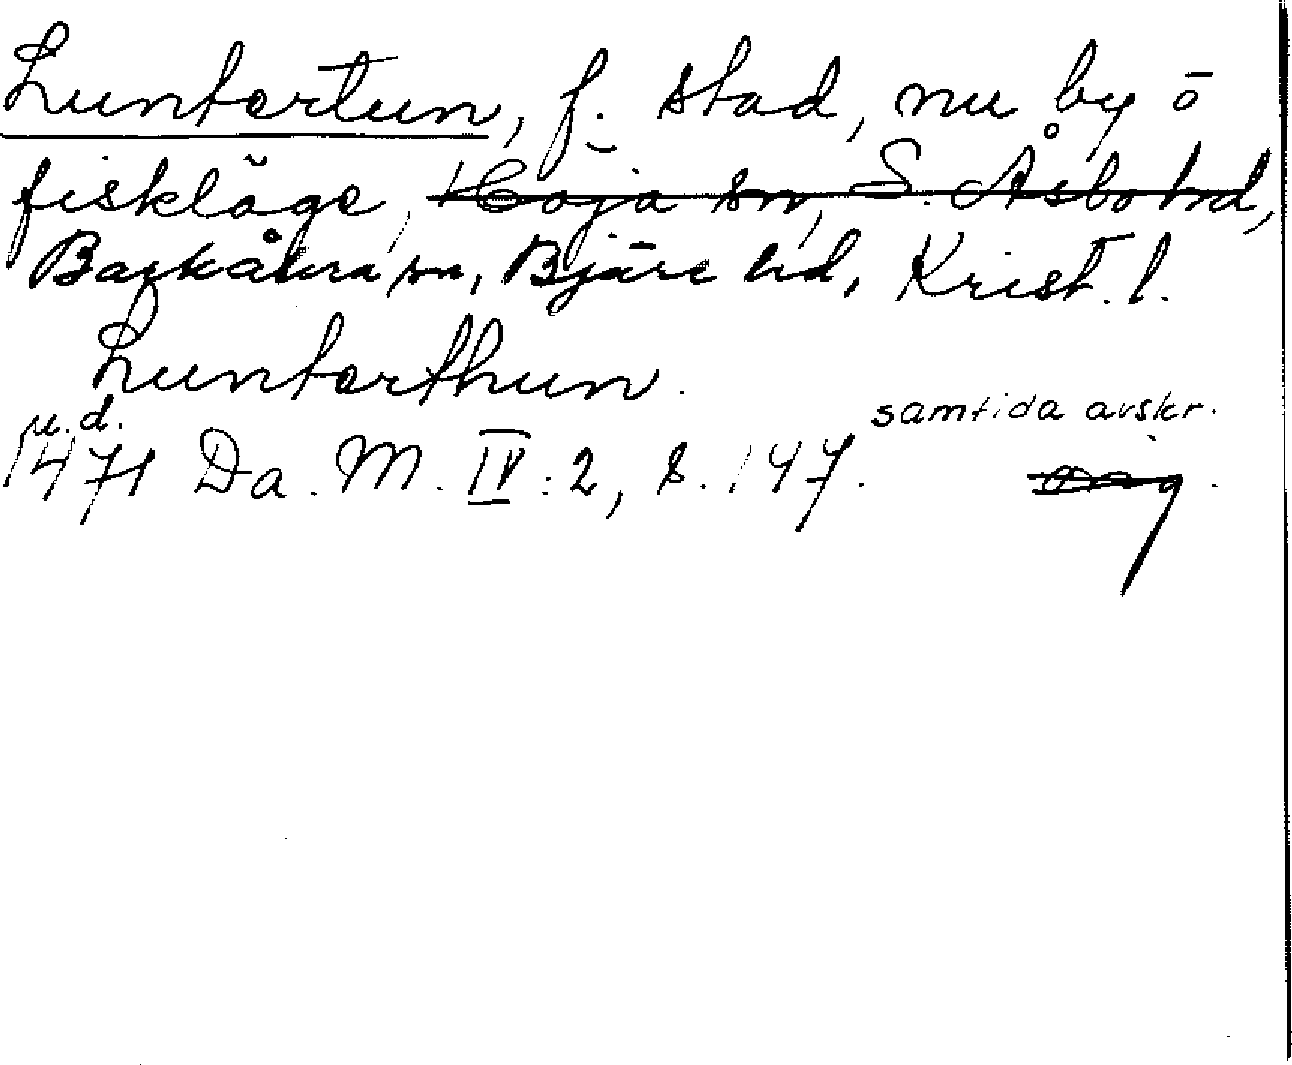 Luntertun, f. stad, nu by o
fiskläge, Höja sn, S. Åsbo hd,
Barkåkra sn, Bjäre hd, Krist. l.
Lunterthun.
u.d. samtida avskr.
1471 Da. M. IV:2, s. 147. orig.